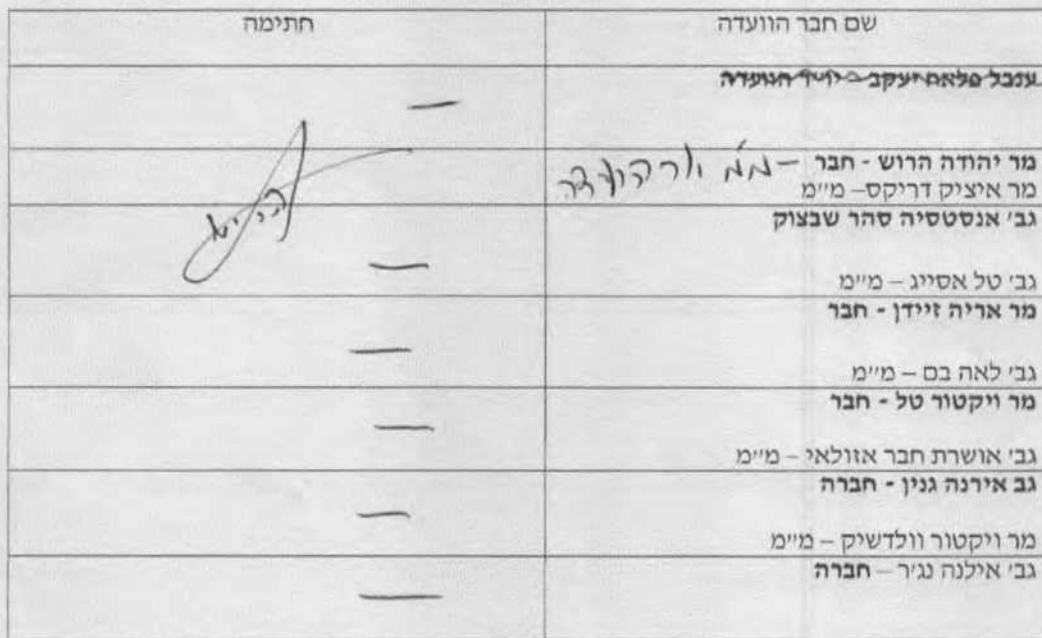 שם חבר הוועדה
חתימה
ענבל פלאח יעקב - יו״ר הוועדה
מר יהודה הרוש - חבר – מ״מ יו״ר הועדה
מר איציק דריקס – מ״מ
גב׳ אנסטסיה סהר שבצוק
גב׳ טל אסייג – מ״מ
מר אריה זיידן - חבר
גב׳ לאה בם – מ״מ
מר ויקטור טל - חבר
גב׳ אושרת חבר אזולאי – מ״מ
גב אירנה גנין - חברה
מר ויקטור וולדשיק – מ״מ
גב׳ אילנה נג׳ר – חברה